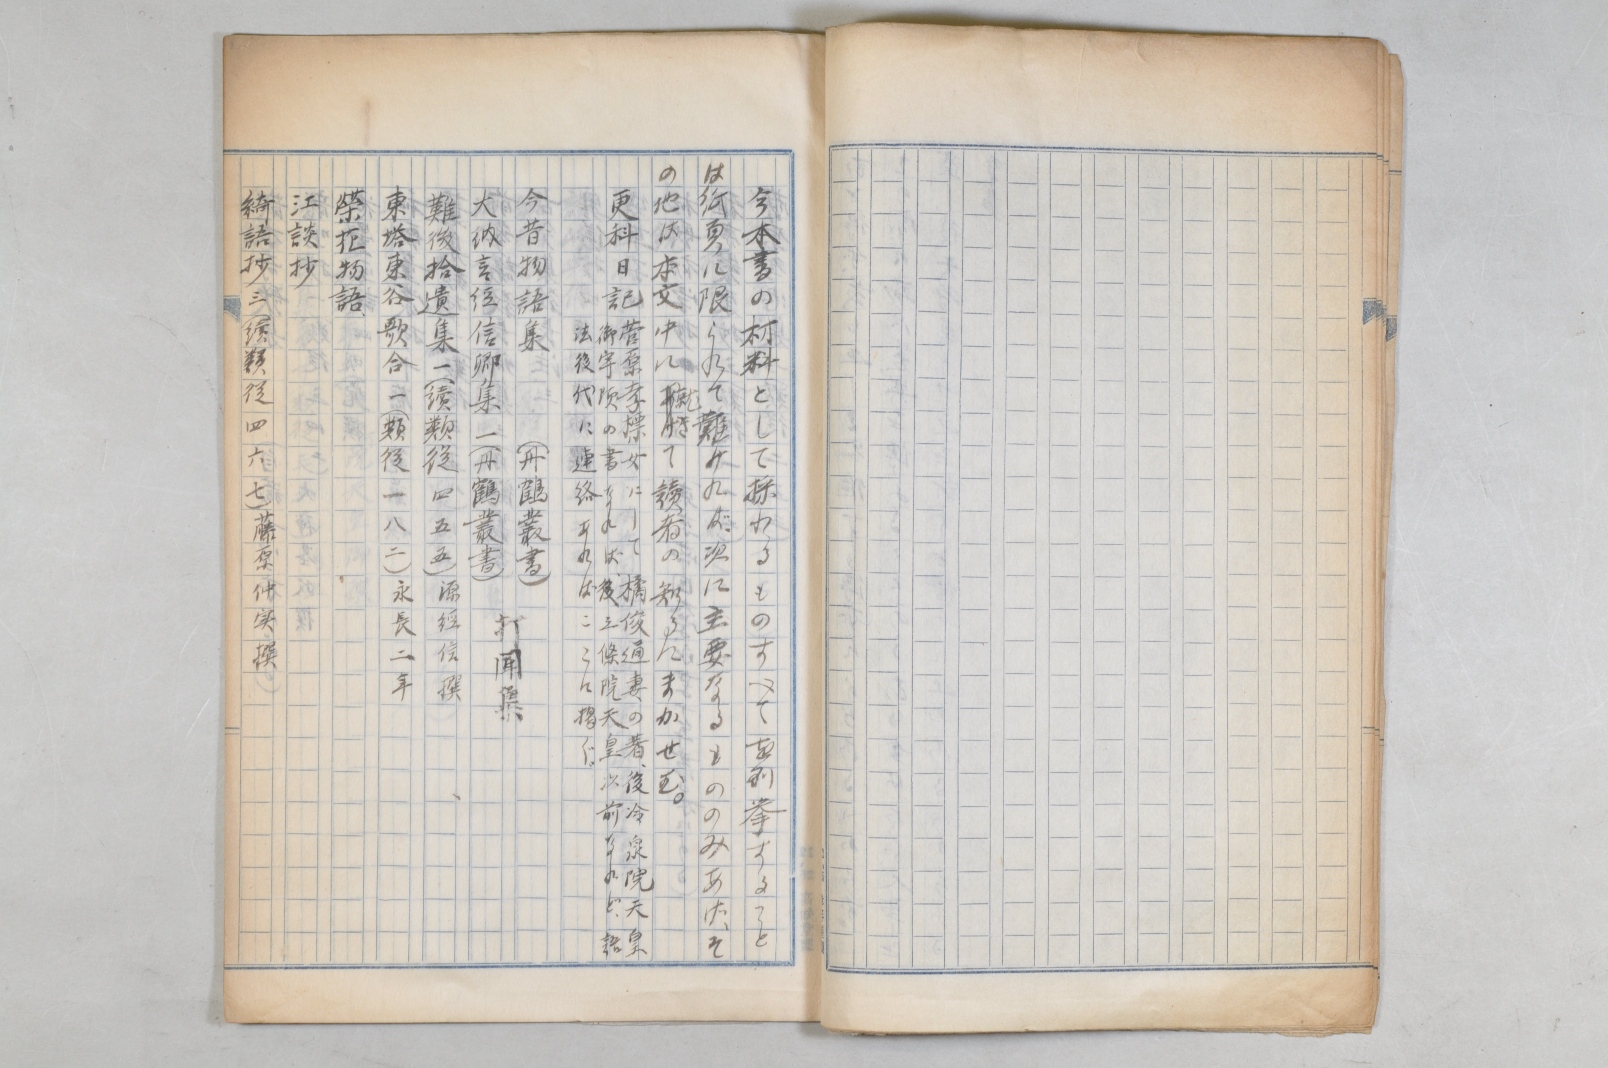 今本書の材料として採れるものすべてを列挙すること
は紙頁に限られて難ければ、次に主要なるもののみあげ、そ
の他は本文中に就きて讀者の知るにまかせむ。
更科日記 菅原孝標女にして橘俊通妻の著、後冷泉院天皇
御宇頃の書なれば、後三條院天皇以前なれど、語
法後代に連絡あればここに揭ぐ。
今昔物語集 (丹鶴叢書)
打聞集
大納言経信卿集 一(丹鶴叢書)
難後拾遺集 一(續類従四五五) 源経信撰
東塔東谷歌合 一(類従一八二) 永長二年
榮花物語
江談抄
綺語抄 三(續類従四六七) 藤原仲実撰